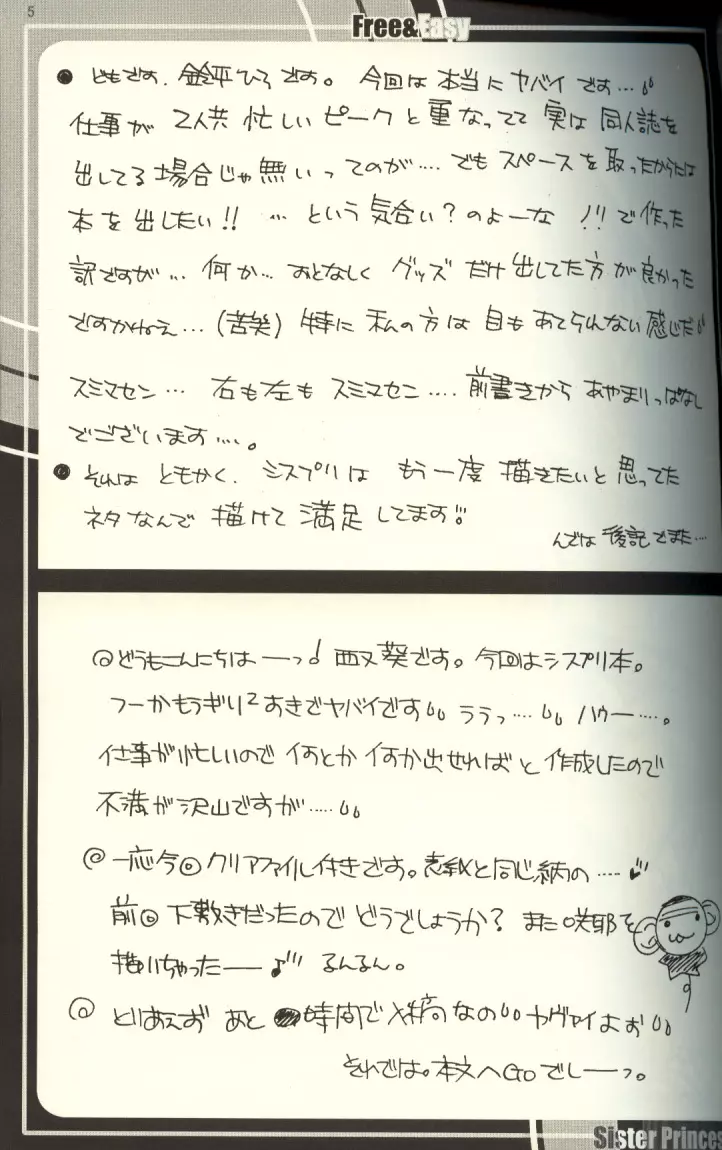 5
Free&Easy
● どもです、鈴平ひろです。今回は本当にヤバイです…
仕事が2人共忙しいピークと重なってて実は同人誌を
出してる場合じゃ無いってのが…でもスペースを取ったからには
本を出したい!! …という気合い?のよーな!!で作った
訳ですが…何か…おとなしくグッズだけ出してた方が良かった
ですかねえ…(苦笑)特に私の方は目もあてられない感じだ
スミマセン… 右も左もスミマセン…前書きからあやまりっぱなし
でございます…。
● それはともかく、シスプリはもう一度描きたいと思ってた
ネタなんで描けて満足してます!!
んでは後記でまた…
@どうもこんにちはーっ♪ 西又葵です。今回はシスプリ本。
つーかもうギリ2あきでヤバイです ううっ…ハウー…。
仕事が忙しいので何とか何か出せればと作成したので
不満が沢山ですが…
@一応今回クリアファイル付きです。表紙と同じ絵柄の…
前回下敷きだったのでどうでしょうか?また咲耶を
描いちゃったー♪ るんるん。
@とりあえずあと 時間で入稿なの ヤヴァイよお
それでは。本文へGoでしーっ。
Sister Princes